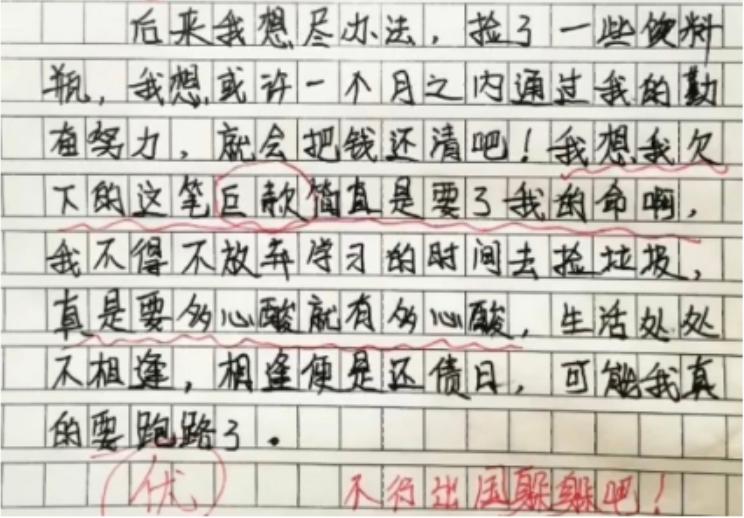 后来我想尽办法，捡了一些饮料
瓶，我想或许一个月之内通过我的勤
奋努力，就会把钱还清吧！我想我欠
下的这笔巨款简直是要了我的命啊，
我不得不放弃学习的时间去捡垃圾，
真是要多心酸就有多心酸，生活处处
不相逢，相逢便是还债日，可能我真
的要跑路了。
优
不行出国躲躲吧！